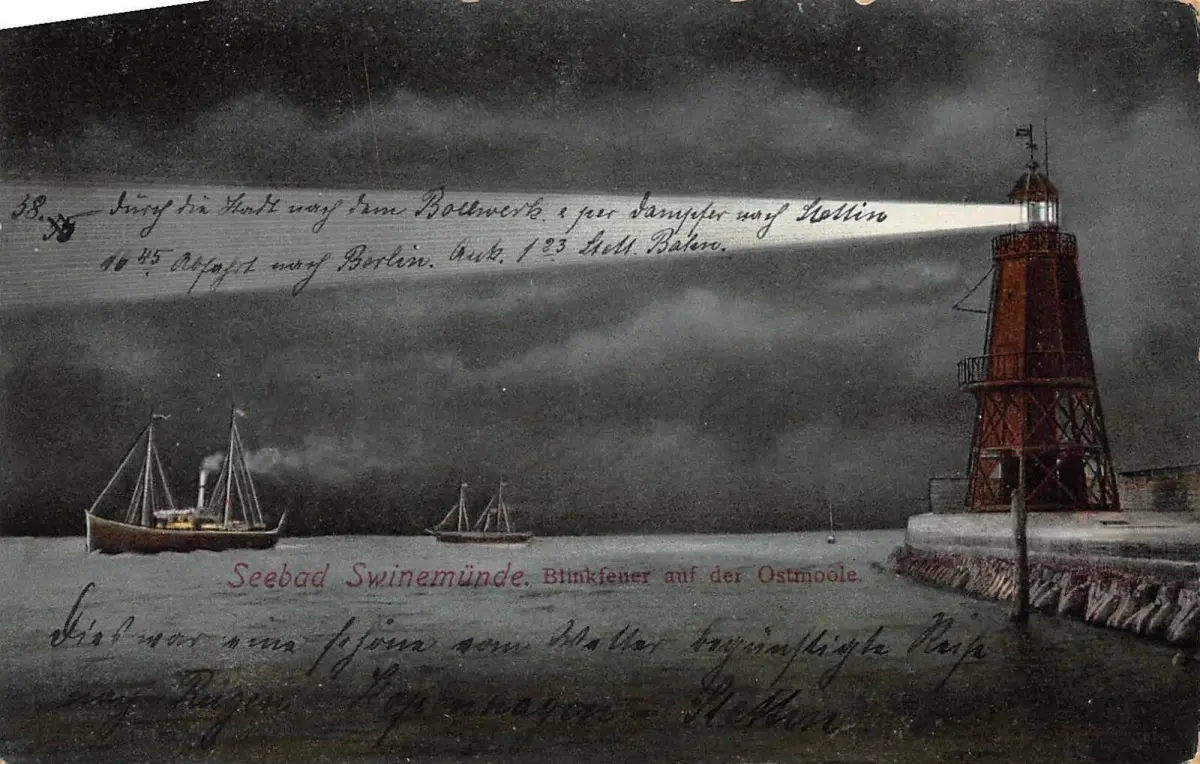 38. durch die Stadt nach dem Bollwerk & per Dampfer nach Stettin
16 45 Abfahrt nach Berlin. Ank. 1 23 Stett. Bahn.
Seebad Swinemünde. Blinkfeuer auf der Ostmoole.
Dies war eine schöne vom Wetter begünstigte Reise
nach Rügen Kopenhagen = Stettin